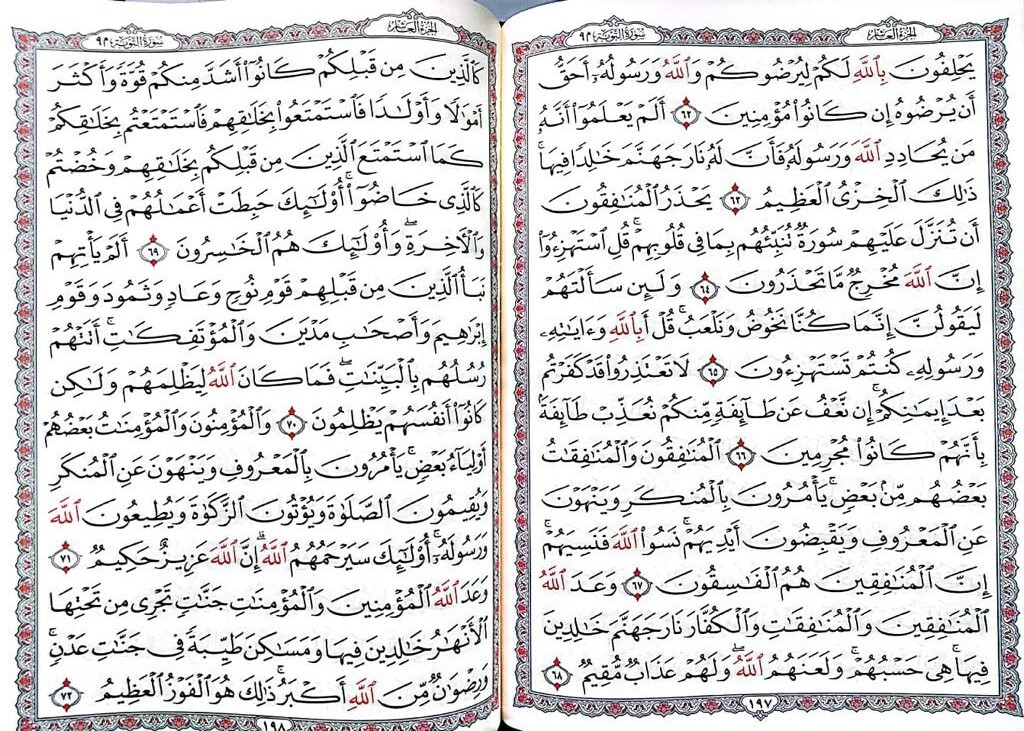 الجزء العاشر
سورة التوبة ٩
يَحْلِفُونَ بِٱللَّهِ لَكُمْ لِيُرْضُوكُمْ وَٱللَّهُ وَرَسُولُهُۥٓ أَحَقُّ
أَن يُرْضُوهُ إِن كَانُوا۟ مُؤْمِنِينَ ٦٢ أَلَمْ يَعْلَمُوٓا۟ أَنَّهُۥ
مَن يُحَادِدِ ٱللَّهَ وَرَسُولَهُۥ فَأَنَّ لَهُۥ نَارَ جَهَنَّمَ خَٰلِدًا فِيهَا ۚ
ذَٰلِكَ ٱلْخِزْىُ ٱلْعَظِيمُ ٦٣ يَحْذَرُ ٱلْمُنَٰفِقُونَ
أَن تُنَزَّلَ عَلَيْهِمْ سُورَةٌ تُنَبِّئُهُم بِمَا فِى قُلُوبِهِمْ ۚ قُلِ ٱسْتَهْزِءُوٓا۟
إِنَّ ٱللَّهَ مُخْرِجٌ مَّا تَحْذَرُونَ ٦٤ وَلَئِن سَأَلْتَهُمْ
لَيَقُولُنَّ إِنَّمَا كُنَّا نَخُوضُ وَنَلْعَبُ ۚ قُلْ أَبِٱللَّهِ وَءَايَٰتِهِۦ
وَرَسُولِهِۦ كُنتُمْ تَسْتَهْزِءُونَ ٦٥ لَا تَعْتَذِرُوا۟ قَدْ كَفَرْتُم
بَعْدَ إِيمَٰنِكُمْ ۚ إِن نَّعْفُ عَن طَآئِفَةٍ مِّنكُمْ نُعَذِّبْ طَآئِفَةًۢ
بِأَنَّهُمْ كَانُوا۟ مُجْرِمِينَ ٦٦ ٱلْمُنَٰفِقُونَ وَٱلْمُنَٰفِقَٰتُ
بَعْضُهُم مِّنۢ بَعْضٍ ۚ يَأْمُرُونَ بِٱلْمُنكَرِ وَيَنْهَوْنَ
عَنِ ٱلْمَعْرُوفِ وَيَقْبِضُونَ أَيْدِيَهُمْ ۚ نَسُوا۟ ٱللَّهَ فَنَسِيَهُمْ ۗ
إِنَّ ٱلْمُنَٰفِقِينَ هُمُ ٱلْفَٰسِقُونَ ٦٧ وَعَدَ ٱللَّهُ
ٱلْمُنَٰفِقِينَ وَٱلْمُنَٰفِقَٰتِ وَٱلْكُفَّارَ نَارَ جَهَنَّمَ خَٰلِدِينَ
فِيهَا ۚ هِىَ حَسْبُهُمْ ۚ وَلَعَنَهُمُ ٱللَّهُ ۖ وَلَهُمْ عَذَابٌ مُّقِيمٌ ٦٨
١٩٧
الجزء العاشر
سورة التوبة ٩
كَٱلَّذِينَ مِن قَبْلِكُمْ كَانُوٓا۟ أَشَدَّ مِنكُمْ قُوَّةً وَأَكْثَرَ
أَمْوَٰلًا وَأَوْلَٰدًا فَٱسْتَمْتَعُوا۟ بِخَلَٰقِهِمْ فَٱسْتَمْتَعْتُم بِخَلَٰقِكُمْ
كَمَا ٱسْتَمْتَعَ ٱلَّذِينَ مِن قَبْلِكُم بِخَلَٰقِهِمْ وَخُضْتُمْ
كَٱلَّذِى خَاضُوٓا۟ ۚ أُو۟لَٰٓئِكَ حَبِطَتْ أَعْمَٰلُهُمْ فِى ٱلدُّنْيَا
وَٱلْءَاخِرَةِ ۖ وَأُو۟لَٰٓئِكَ هُمُ ٱلْخَٰسِرُونَ ٦٩ أَلَمْ يَأْتِهِمْ
نَبَأُ ٱلَّذِينَ مِن قَبْلِهِمْ قَوْمِ نُوحٍ وَعَادٍ وَثَمُودَ وَقَوْمِ
إِبْرَٰهِيمَ وَأَصْحَٰبِ مَدْيَنَ وَٱلْمُؤْتَفِكَٰتِ ۚ أَتَتْهُمْ
رُسُلُهُم بِٱلْبَيِّنَٰتِ ۖ فَمَا كَانَ ٱللَّهُ لِيَظْلِمَهُمْ وَلَٰكِن
كَانُوٓا۟ أَنفُسَهُمْ يَظْلِمُونَ ٧٠ وَٱلْمُؤْمِنُونَ وَٱلْمُؤْمِنَٰتُ بَعْضُهُمْ
أَوْلِيَآءُ بَعْضٍ ۚ يَأْمُرُونَ بِٱلْمَعْرُوفِ وَيَنْهَوْنَ عَنِ ٱلْمُنكَرِ
وَيُقِيمُونَ ٱلصَّلَوٰةَ وَيُؤْتُونَ ٱلزَّكَوٰةَ وَيُطِيعُونَ ٱللَّهَ
وَرَسُولَهُۥٓ ۚ أُو۟لَٰٓئِكَ سَيَرْحَمُهُمُ ٱللَّهُ ۗ إِنَّ ٱللَّهَ عَزِيزٌ حَكِيمٌ ٧١
وَعَدَ ٱللَّهُ ٱلْمُؤْمِنِينَ وَٱلْمُؤْمِنَٰتِ جَنَّٰتٍ تَجْرِى مِن تَحْتِهَا
ٱلْأَنْهَٰرُ خَٰلِدِينَ فِيهَا وَمَسَٰكِنَ طَيِّبَةً فِى جَنَّٰتِ عَدْنٍ ۚ
وَرِضْوَٰنٌ مِّنَ ٱللَّهِ أَكْبَرُ ۚ ذَٰلِكَ هُوَ ٱلْفَوْزُ ٱلْعَظِيمُ ٧٢
١٩٨